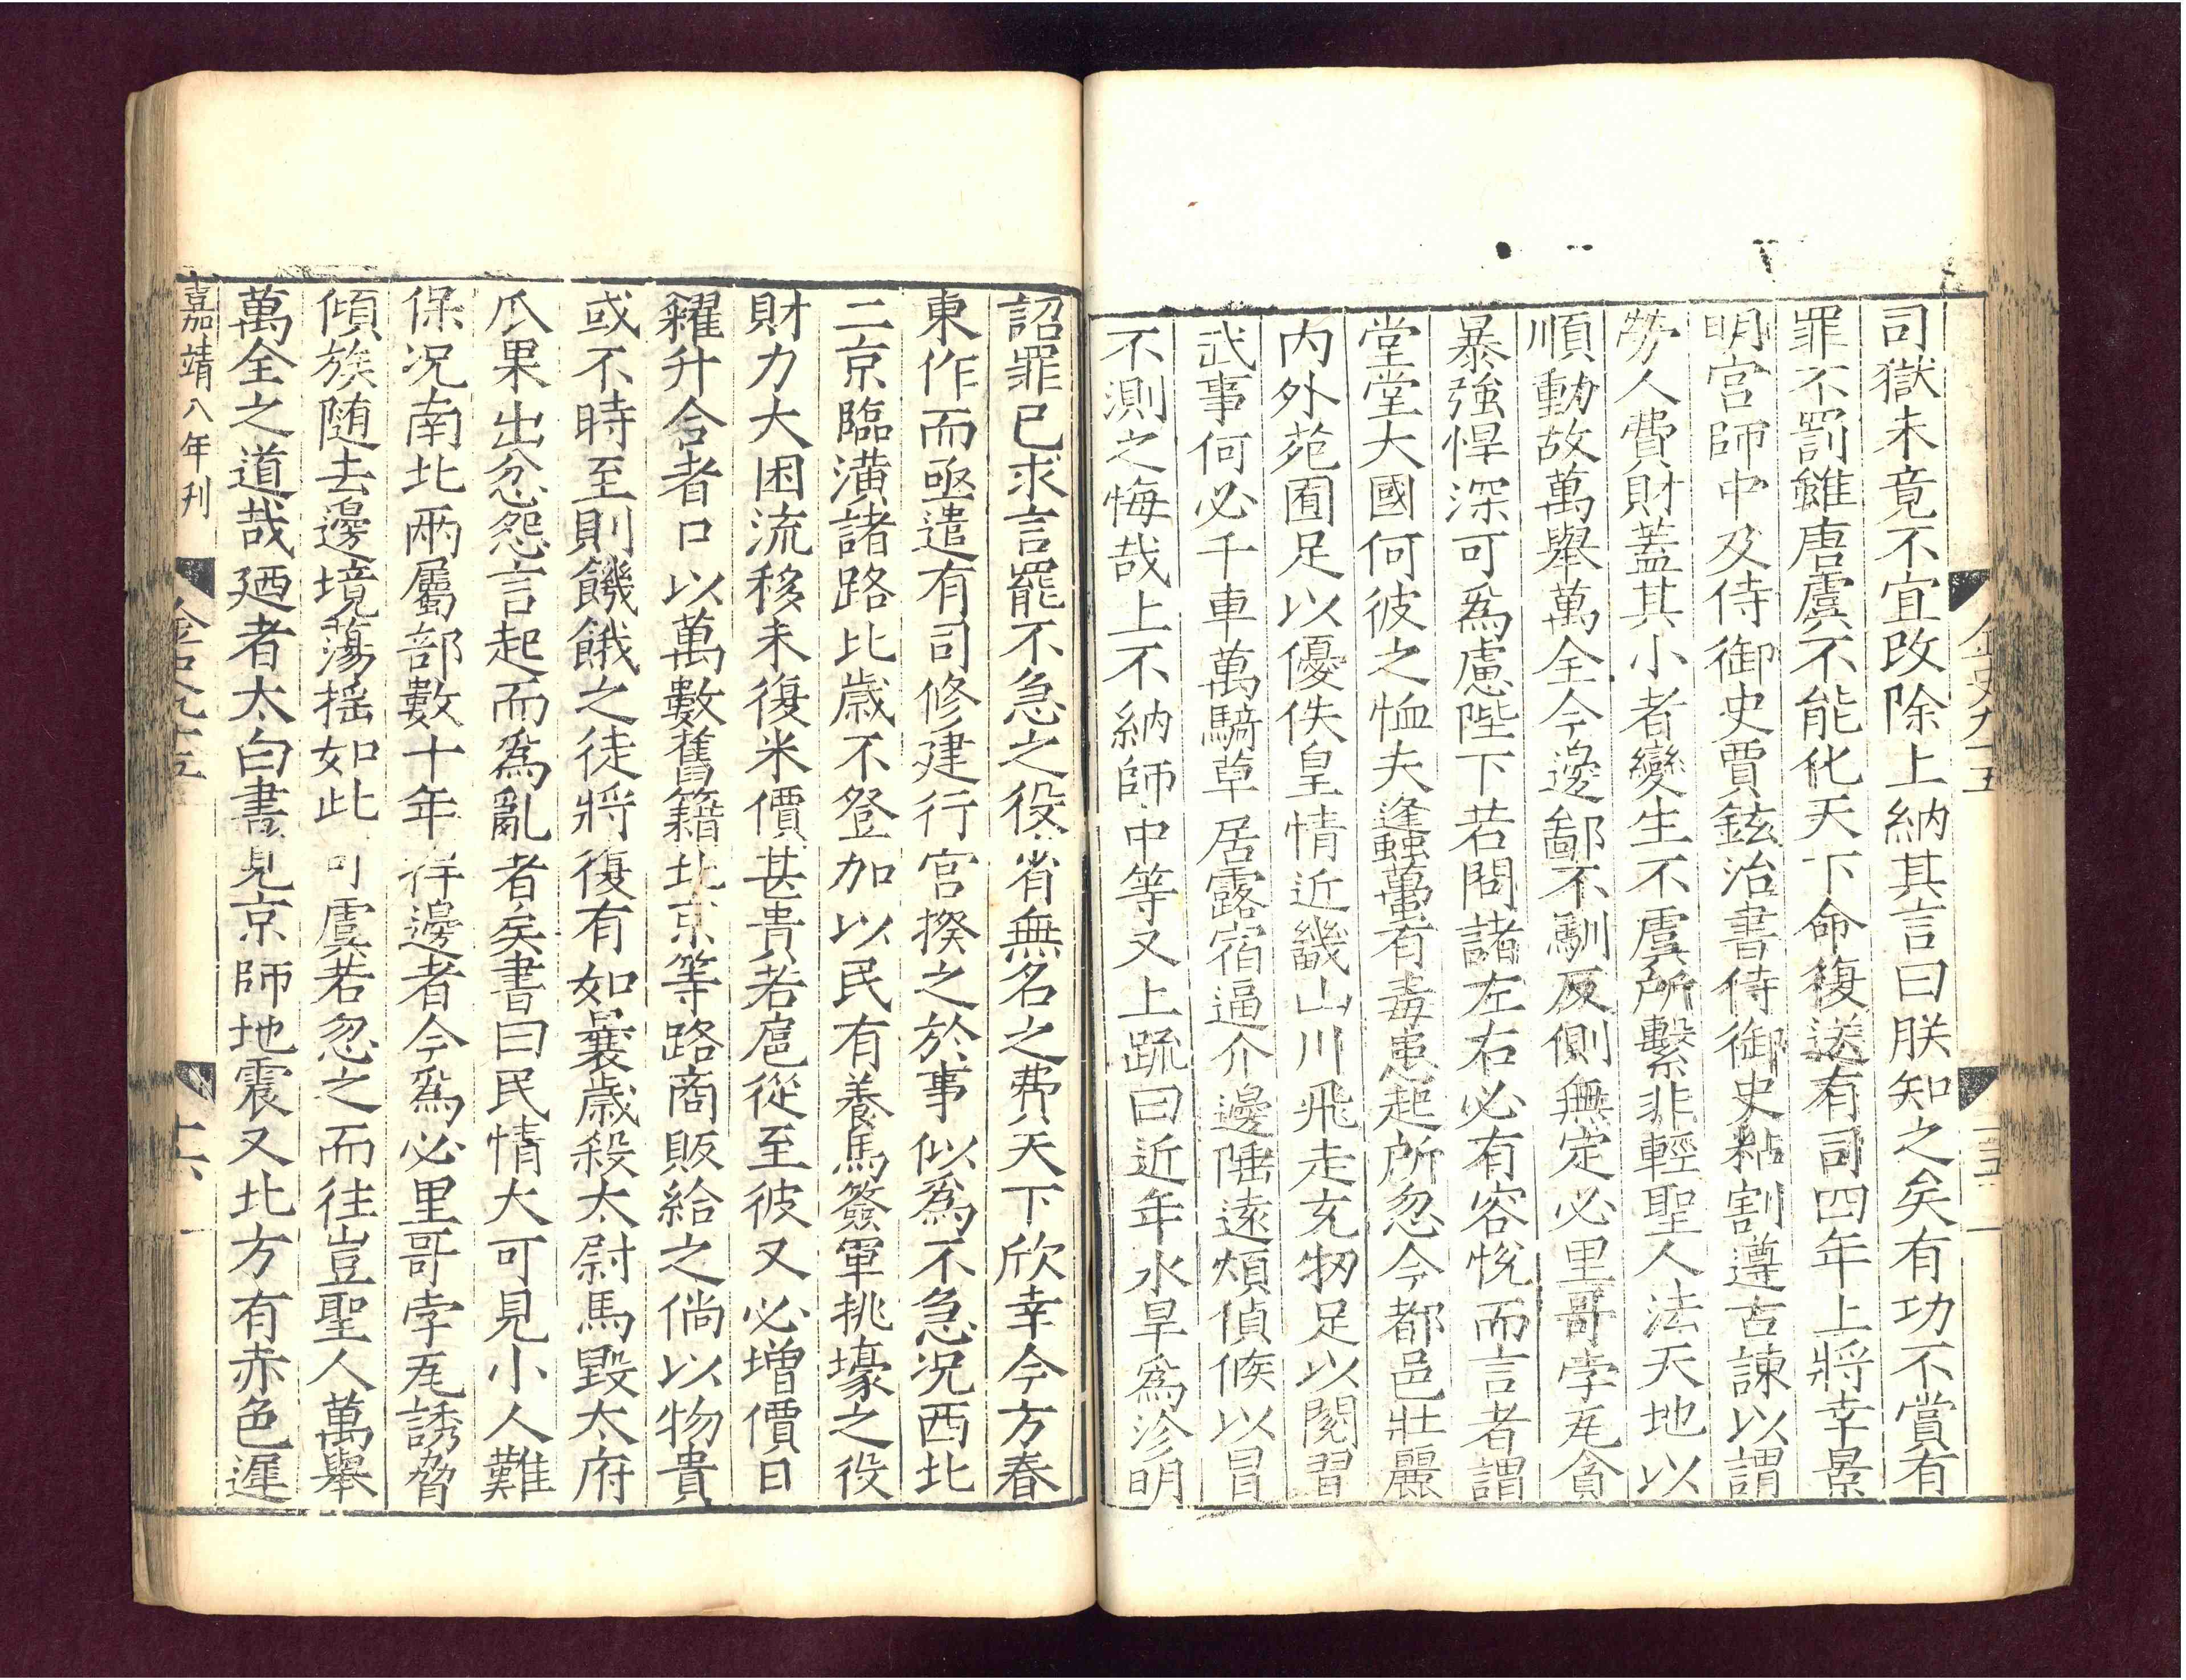 司獄未竟不宜改除上納其言曰朕知之矣有功不賞有
罪不罰雖唐虞不能化天下命復送有司四年上將幸景
明宮師中及侍御史賈鉉治書侍御史粘割遵古諫以謂
勞人費財蓋其小者變生不虞所繫非輕聖人法天地以
順動故萬舉萬全今邊鄙不馴反側無定必里哥孛瓦貪
暴強悍深可為慮陛下若問諸左右必有容悅而言者謂
堂堂大國何彼之恤夫蜂蠆有毒患起所忽今都邑壯麗
内外苑囿足以優佚皇情近畿山川飛走充牣足以閱習
武事何必千車萬騎草居露宿逼介邊陲遠煩偵候以冒
不測之悔哉上不納師中等又上疏曰近年水旱為沴明
詔罪已求言罷不急之役省無名之費天下欣幸今方春
東作而亟遣有司修建行宮揆之於事似為不急况西北
二京臨潢諸路比歲不登加以民有養馬簽軍挑壕之役
財力大困流移未復米價甚貴若扈從至彼又必增價日
糴升合者口以萬數舊籍北京等路商販給之倘以物貴
或不時至則饑餓之徒將復有如曩歲殺太尉馬毀太府
瓜果出忿怨言起而為亂者矣書曰民情大可見小人難
保况南北兩屬部數十年捍邊者今為必里哥孛瓦誘脅
傾族隨去邊境蕩搖如此可虞若忽之而往豈聖人萬舉
萬全之道哉廼者太白晝見京師地震又北方有赤色遲
嘉靖八年刊
金史九十五
十六